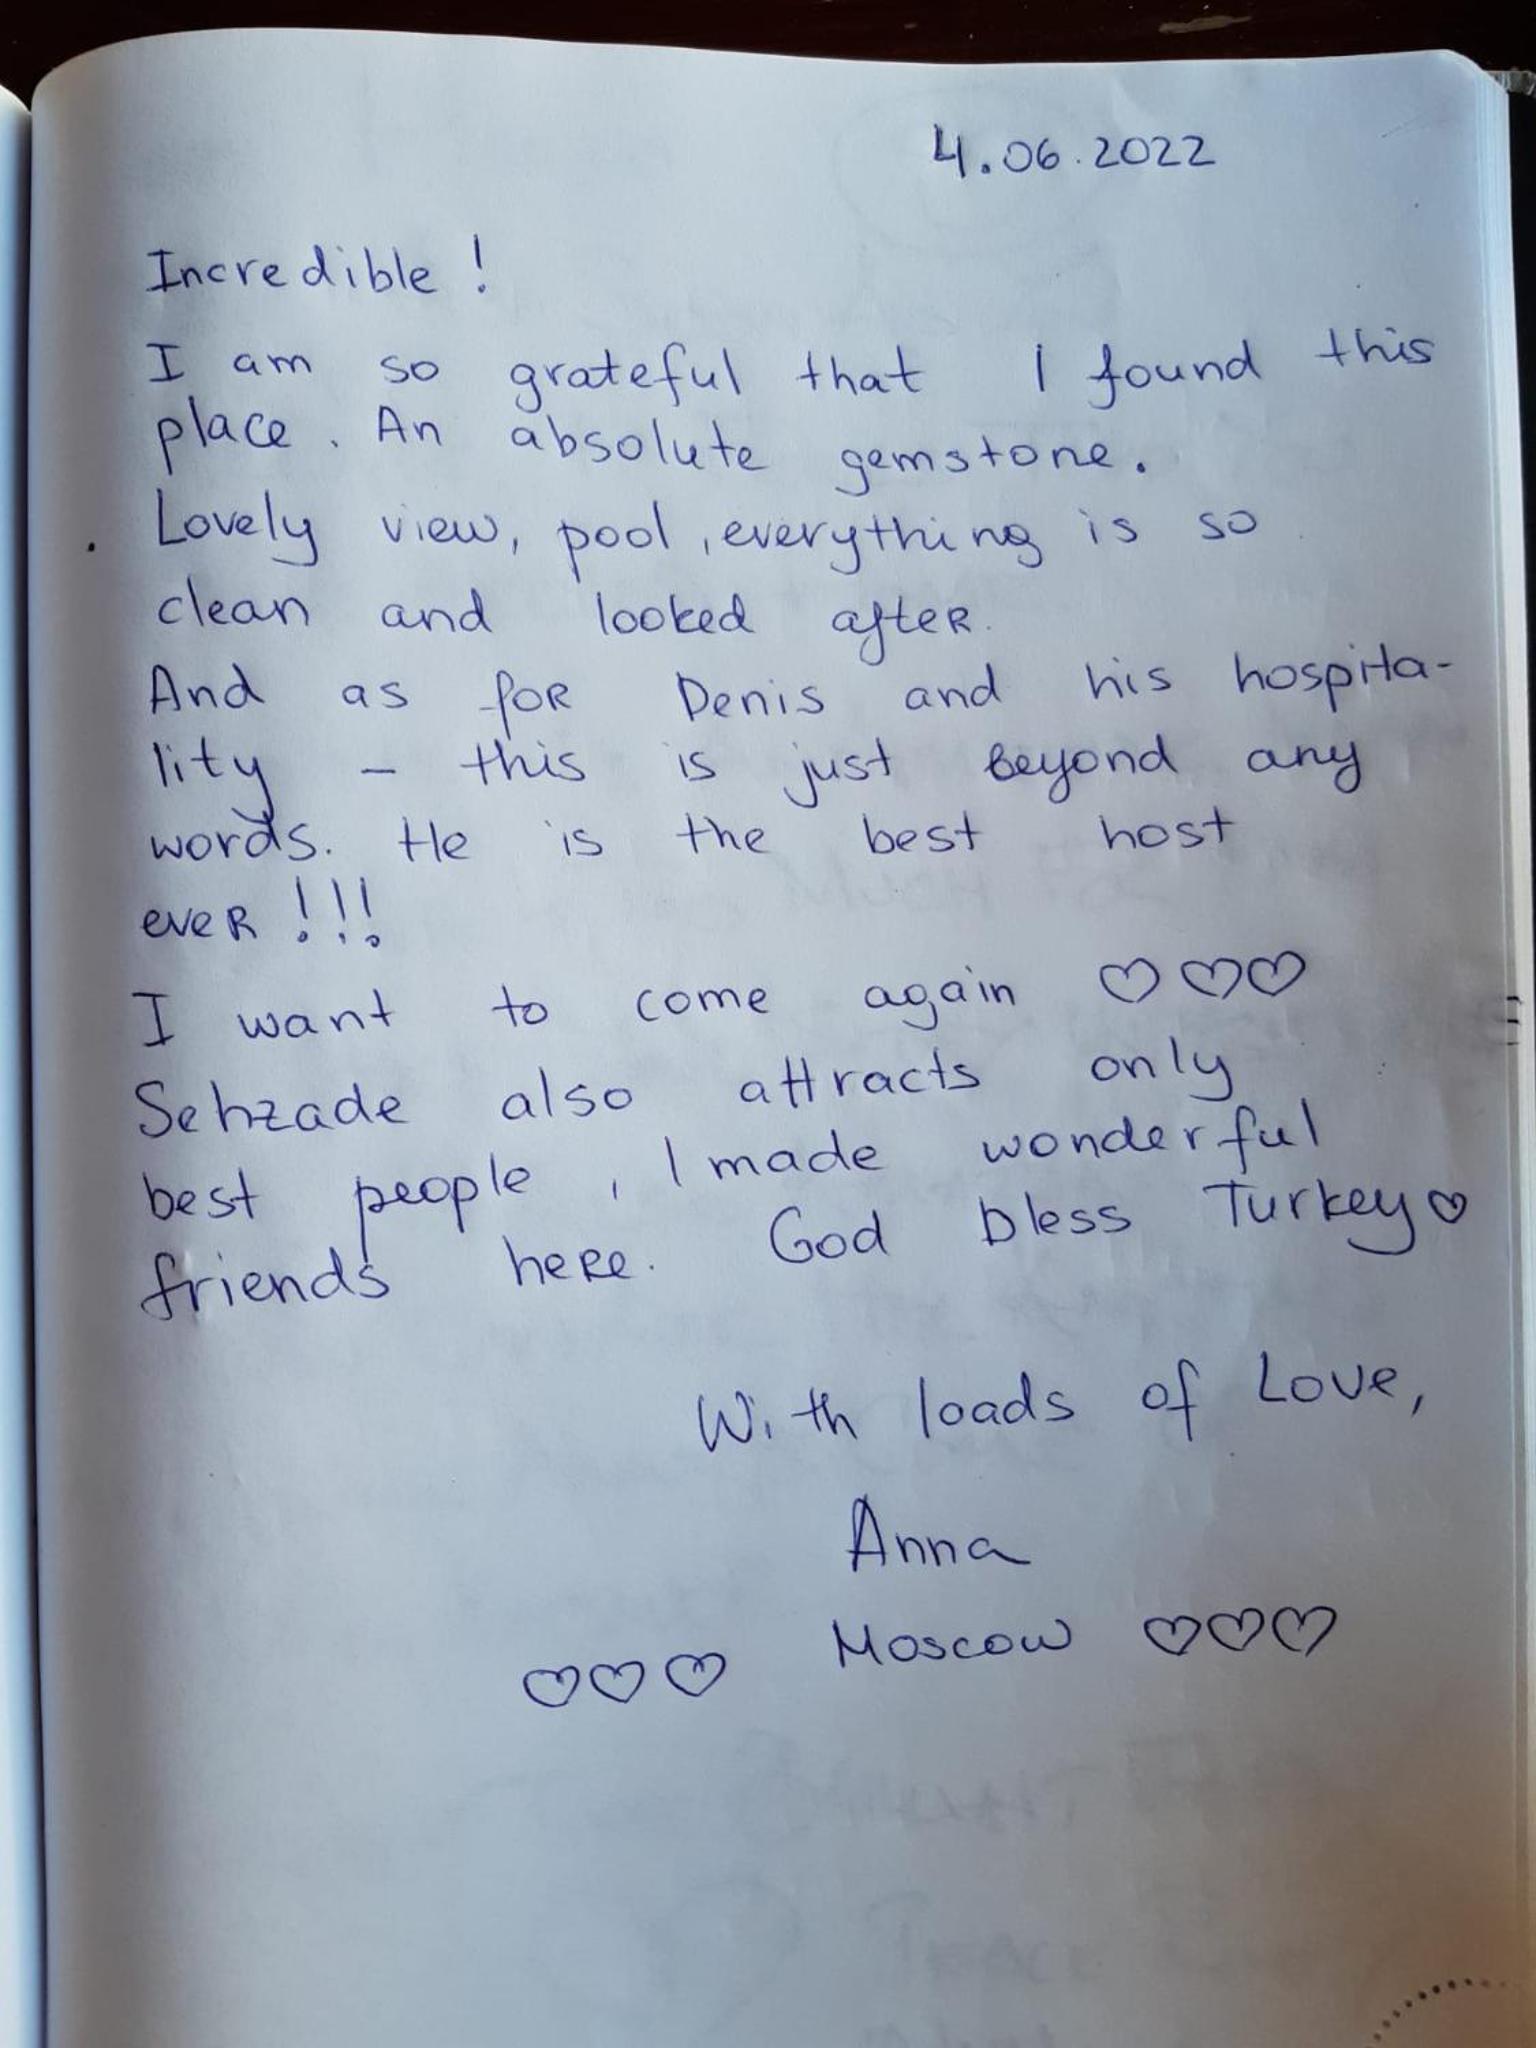 4.06.2022
Incredible!
I am so grateful that I found this
place. An absolute gemstone.
Lovely view, pool, everything is so
clean and looked after.
And as for Denis and his hospita-
lity - this is just beyond any
words. He is the best host
ever!!!
I want to come again ♡♡♡
Sehzade also attracts only
best people, I made wonderful
friends here. God bless Turkey ♡
With loads of Love,
Anna
♡♡♡ Moscow ♡♡♡